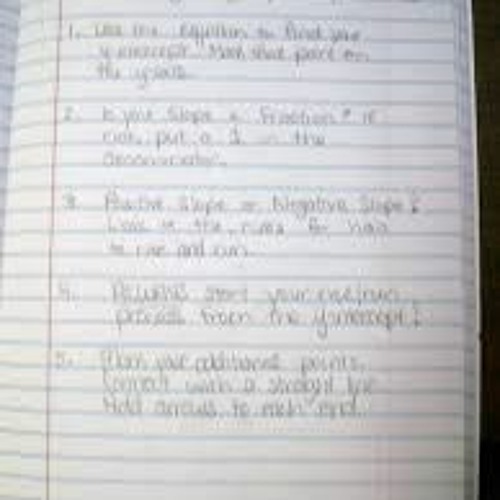 1. Use the equation to find your
y-intercept. Mark that point on
the y-axis.
2. Is your slope a fraction? If
not, put a 1 in the
denominator.
3. Positive Slope or Negative Slope?
Look at the rules for how
to rise and run.
4. ALWAYS start your rise/run
process from the y-intercept!
5. your additional points.
Connect with a straight line
Add arrows to each end.